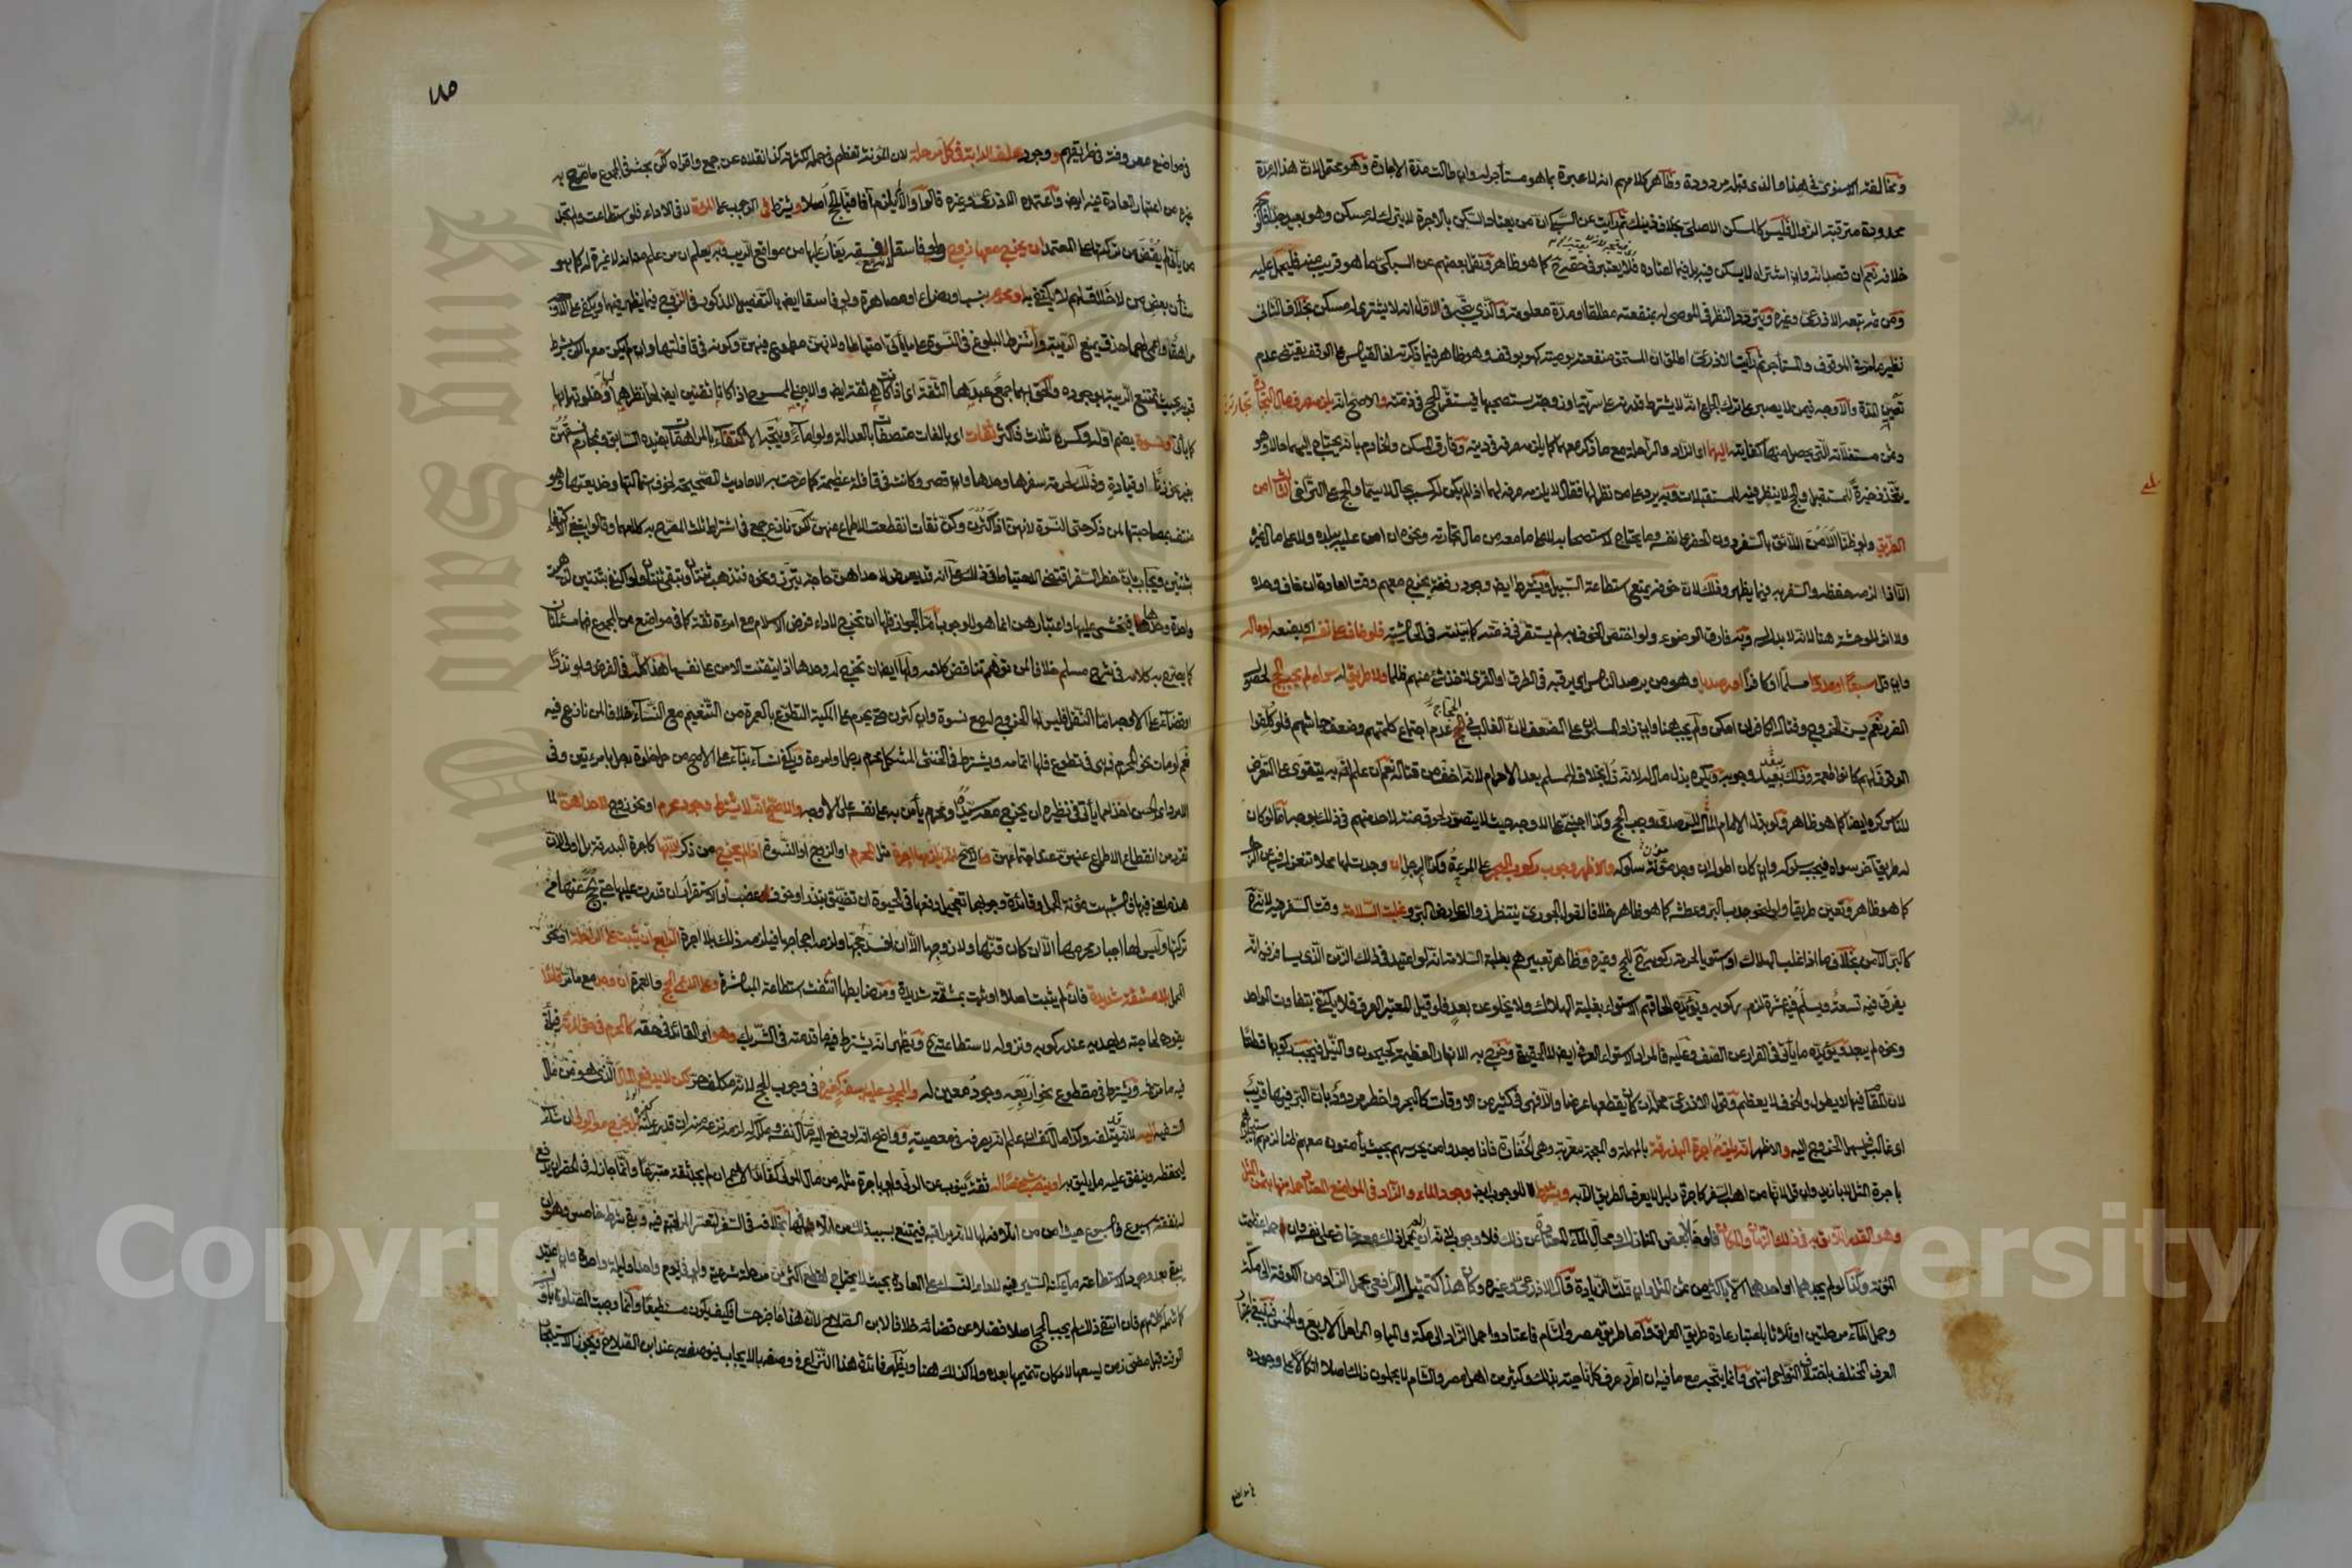 ومخالفة الاسنوي في هذا والذي قبله مردودة وظاهر كلامهم انه لا عبرة بما هو مستأجر له وان طالت مدة الاجارة وهو محتمل لان هذا المدة
محدودة مترقبة الزوال فليس كالمسكن الاصلي بخلاف ذينك ثم رأيت عن السبكي ان من يعتاد السكنى بالاجرة لا يترك له مسكن وهو بعيد
خلافه نعم ان قصد انه وان اشترله لا يسكن فيه فلا يعتبر في حقه كما هو ظاهر ونقل بعضهم عن السبكي ما هو قريب منه فليحمل عليه
ومن ثم تبعه الاذرعي وغيره ويتردد النظر في الموصى له بمنفعته مطلقا او مدة معلومة والذي يتجه في الاول انه لا يشترى له مسكن بخلاف الثاني
نظير ما مر في الموقوف والمستأجر ثم رأيت الاذرعي اطلق ان المستحق منفعته بوصية كهو بوقف وهو ظاهر فيما ذكرته
تعيين المدة والاوجه فيمن لا يصبر على ترك الجماع انه لا يشترط قدرته على سرية او زوجة يستصحبها فيستقر الحج في ذمته والاصح انه يلزمه صرف مال تجارته
وثمن مستغلاته التي يحصل منها كفايته اليهما اي الزاد والراحلة مع ما ذكر معهما كما يلزمه صرفه في دينه وفارق المسكن والخادم بانه يحتاج اليهما حالا وهو
يتخذ ذخيرة للمستقبل والحج لا ينظر فيه للمستقبلات وبه يرد على من نظر لها فقال لا يلزمه صرفه لهما اذا لم يكن له كسب بحال لا سيما والحج على التراخي الثالث امن
الطريق ولو ظنا الامن اللائق بالسفر دون الحضر على نفسه وما يحتاج لاستصحابه لا على ما معه من مال تجارته ونحوه ان امن عليه ببلده ولا على مال الغير
الا اذا لزمه حفظه والسفر به فيما يظهر وذلك لان خوفه يمنع استطاعة السبيل ويشترط ايضا وجود رفقة يخرج معهم وقت العادة ان خاف وحده
ولا اثر للوحشة هنا لانه لا بدل له وبه فارق الوضوء ولو اختص الخوف به لم يستقر في ذمته كما بينته في الحاشية فلو خاف على نفسه او بضعه او ماله
وان قل سبعا او عدوا مسلما او كافرا او رصديا وهو من يرصد الناس اي يرقبهم في الطرق او القرى لاخذ شيء منهم ظلما ولا طريق له سواه لم يجب الحج لحصول
الضرر نعم يسن الخروج وقتال الكافر ان امكن ولم يجب هنا وان زاد المسلمون على الضعف لان الغالب في الحجاج عدم اجتماع كلمتهم وضعف جأشهم فلو كلفوا
الوقوف لهم كانوا طعمة وذلك يبعد وجوبه ويكره بذل مال له لانه ذل بخلافه للمسلم بعد الاحرام لانه اخف من قتاله نعم ان علم انه به يتقوى على التعرض
للناس كره ايضا كما هو ظاهر ولو بذل الامام المال للرصدي وجب الحج وكذا اجنبي على الاوجه حيث لا يتصور لحوق منة لاحد منهم في ذلك بوجه اما لو كان
له طريق آخر سواه فيجب سلوكه وان كان اطول ان وجد مؤن سلوكه والاظهر وجوب ركوب البحر على المرءة وكذا الرجل ان وجدت لها محلا تنعزل فيه عن الرجال
كما هو ظاهر وتعين طريقا ولو لنحو جدب البر وعطشه كما هو ظاهر خلافا لقول الجوري ينتظر زوال عارض البر وغلبت السلامة وقت السفر فيه لانه
كالبر الآمن بخلاف ما اذا غلب الهلاك او استويا لحرمة ركوبه حينئذ للحج وغيره وظاهر تعبيرهم بغلبة السلامة انه لو اعتيد في ذلك الزمن الذي يسافر فيه انه
يغرق فيه تسعة ويسلم فيه عشرة لزم ركوبه ويؤيده الحاقهم الاستواء بغلبة الهلاك ولا يخلو عن بعد فلو قيل المعتبر العرف فلا يكتفى بتفاوت الواحد
ونحوه لم يبعد ويؤيده ما يأتي في الفرار عن الصف وعليه فالمراد الاستواء العرفي ايضا لا الحقيقي وخرج به الانهار العظيمة كجيحون والنيل فيجب ركوبها قطعا
لان المقام فيها لا يطول والخوف لا يعظم وقول الاذرعي محل ان كان يقطعها عرضا والا فهي في كثير من الاوقات كالبحر واخطر مردود بان البر فيها قريب
اي غالبا فيسهل الخروج اليه والاظهر انه يلزمه اجرة البذرقة بالمهملة والمعجمة معربة وهي الخفارة فاذا وجدوا من يحرسهم بحيث يأمنون معهم ظنا لزمهم استئجاره
باجرة المثل لا بازيد وان قل لانها من اهب السفر كاجرة دليل لا يعرف الطريق الا به ويشترط للوجوب ايضا وجود الماء والزاد في المواضع المعتاد حملها منها بثمن المثل
وهو القدر اللائق به في ذلك الزمان والمكان فلو خلا بعض المنازل او محال الماء المعتادة عن ذلك فلا وجوب لانه ان تحمل ذلك معه خاف على نفسه وان حمله عظمت
المؤنة وكذا لو لم يجدهما او احدهما الا باكثر من ثمن المثل وان قلت الزيادة قال الاذرعي وغيره وكان هذا كتمثيل الرافعي بحمل الزاد من الكوفة الى مكة
وحمل الماء مرحلتين او ثلاثا باعتبار عادة طريق العراق واما طريق مصر والشام فاعتادوا حمل الزاد الى مكة والمياه المراحل الاربع والخمس فينبغي اتباع
العرف المختلف باختلاف النواحي انتهى وانما يتجه مع ما فيه ان اطرد عرف كل ناحية بذلك وكثير من اهل مصر والشام لا يحملون ذلك اصلا اتكالا على وجوده
في مواضع
في مواضع معروفة في طريقهم ووجود علف الدابة في كل مرحلة لان المؤنة تعظم في حمله لكثرته كذا نقلاه عن جمع واقراه لكن بحث في المجموع ما صرح به
غيره من اعتبار العادة فيه ايضا واعتمده الاذرعي وغيره قالوا والا لم يلزم آفاقيا الحج اصلا ويشترط في الوجوب على المرءة لا في الاداء فلو استطاعت ولم تجد
من يأتي لم يقض من تركتها على المعتمد ان يخرج معها زوج ولو فاسقا لانه مع فسقه يغار عليها من مواقع الريب وبه يعلم ان من علم منه انه لا غيرة له كما هو
شأن بعض من لا خلاق لهم لا يكتفى به او محرم بنسب او رضاع او مصاهرة ولو فاسقا ايضا بالتفصيل المذكور في الزوج فيما يظهر فيهما ويكفي على الاوجه
مراهق واعمى لهما حذق يمنع الريبة واشترط البلوغ في النسوة على ما يأتي احتياطا ولانهن مطموع فيهن وكونه في قافلتها وان لم يكن معها لكن بشرط
قربه بحيث تمتنع الريبة بوجوده والحق بهما جمع عبدها الثقة اي اذا كانت هي ثقة ايضا والاجنبي الممسوح اذا كانا ثقتين ايضا لحل نظرهما لها وخلوتهما بها
كما يأتي او نسوة بضم اوله وكسره ثلاث فاكثر ثقات اي بالغات متصفات بالعدالة ولو اماء ويتجه الاكتفاء بالمراهقات بقيده السابق وبمحارم فسقهن
بغير نحو زنا او قيادة وذلك لحرمة سفرها وحدها وان قصر وكانت في قافلة عظيمة كما صرحت به الاحاديث الصحيحة لخوف استمالتها وخديعتها وهو
منتف بمصاحبتها لمن ذكر حتى النسوة لانهن اذا كثرن وكن ثقات انقطعت الاطماع عنهن لكن نازع جمع في اشتراط ثلاث المصرح به كلامهما وقالوا ينبغي الاكتفاء
بثنتين ويجاب بان خطر السفر اقتضى الاحتياط في ذلك على انه قد يعرض لاحداهن حاجة تبرز ونحوه فتذهب ثنتان وتبقى ثنتان ولو اكتفي بثنتين لذهبت
واحدة وحدها فيخشى عليها واعتبارهن انما هو للوجوب اما الجواز فلها ان تخرج لاداء فرض الاسلام مع امرءة ثقة كما في مواضع من المجموع فهما مسئلتان
كما يصرح به كلامه في شرح مسلم خلافا لمن توهم تناقض كلامه ولها ايضا ان تخرج له وحدها اذا تيقنت الامن على نفسها هذا كله في الفرض ولو نذرا
او قضاء على الاوجه اما النفل فليس لها الخروج له مع نسوة وان كثرن حتى يحرم على المكية التطوع بالعمرة من التنعيم مع النساء خلافا لمن نازع فيه
نعم لو مات نحو المحرم وهي في تطوع فلها اتمامه ويشترط في الخنثى المشكل محرم رجل او امرءة ويكفي نساء بناء على الاصح من حل خلوة رجل بامرءتين وفي
الامرد اي الحسن اخذا مما يأتي في نظيره ان يخرج معه سيد او محرم يأمن به على نفسه على الاوجه والاصح انه لا يشترط وجود محرم او نحو زوج لاحداهن لما
تقرر من انقطاع الاطماع عنهن عند اجتماعهن والاصح انه يلزمها اجرة مثل المحرم او الزوج او النسوة اذا لم يخرج من ذكر الا بها كاجرة البذرقة بل اولى لان
هذه لمعنى فيها فاشبهت مؤنة الحمل وفائدة وجوبها تعجيل دفعها في الحيوة ان تضيق بنذر او خوف عضب او الاستقرار ان قدرت عليها حتى يحج عنها من
تركتها وليس لها اجبار محرمها الا ان كان قنها ولا زوجها الا ان افسد حجها ولزمه احجاجها فيلزمه ذلك بلا اجرة الرابع ان يثبت على الراحلة او نحو
المحمل بلا مشقة شديدة فان لم يثبت اصلا او ثبت بمشقة شديدة ومر ضابطها انتفت استطاعة المباشرة وعلى الاعمى الحج والعمرة ان وجد مع ما مر قائدا
يقوده لحاجته ويهديه عند ركوبه ونزوله لاستطاعته حينئذ ويظهر انه يشترط فيه ما قدمته في الشريك وهو اي القائد في حقه كالمحرم في حق المرءة فيأتي
فيه ما مر ثم ويشترط في مقطوع نحو اربعه وجود معين له والمحجور عليه بسفه كغيره في وجوب الحج لانه مكلف حر لكن لا يدفع المال الذي هو من مال
السفيه اليه لانه يتلفه وكذا مال الكفالة ان علم انه يصرفه في معصية وواضح انه لو دفع اليه مال نفسه وملكه له لزمه نزعه منه ان قدر عليه بل يخرج معه الولي ان شاء
ليحفظه وينفق عليه ما يليق به او ينصب شخصا له ثقة ينوب عن الولي ولو باجرة مثله من مال المولى كقائد الاعمى ان لم يجد ثقة متبرعا وانما جاز له في الحضر ان يدفع
له نفقة اسبوع فاسبوع حيث امن من اتلافه لها لانه يراقبه فيمتنع بسبب ذلك من اتلافها بخلافه في السفر لتعذر المراقبة فيه وبقي شرط خامس وهو ان
يبقى بعد وجود الاستطاعة ما يمكنه السير فيه لاداء النسك على العادة بحيث لا يحتاج لقطع اكثر من مرحلة شرعية ولو في يوم واحد او ليلة واحدة وان اعتيد
كما شمله كلامهم فان انتفى ذلك لم يجب الحج اصلا فضلا عن قضائه خلافا لابن الصلاح لان هذا عاجز حسا فكيف يكون مستطيعا وانما وجبت الصلوة باول
الوقت قبل مضي زمن يسعها لامكان تتميمها بعده ولا كذلك هنا ويظهر فائدة هذا النزاع في وصفه بالايجاب فيوصف به عند ابن الصلاح ويجوز الاستيجار